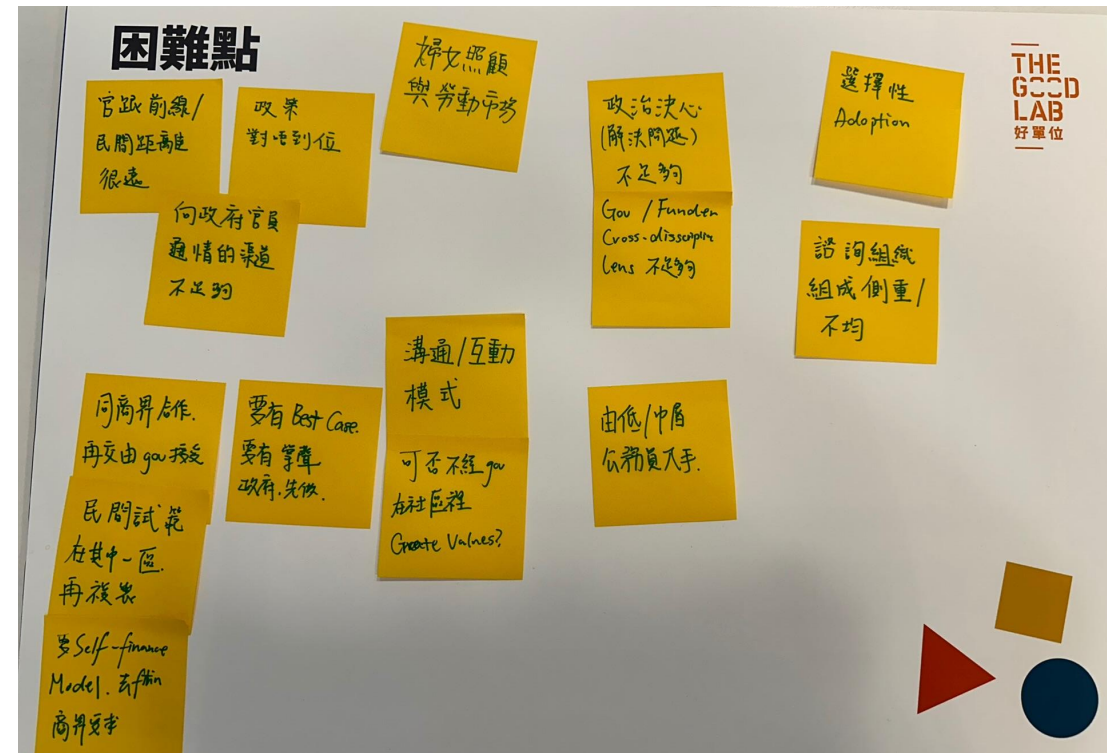 困難點
THE
GOOD
LAB
好單位
官跟前線/
民間距離
很遠
政策
對唔到位
向政府官員
通情的渠道
不足夠
婦女照顧
與勞動市場
政治決心
(解決問題)
不足夠
Gov / Funder
Cross-disscipline
Lens 不足夠
選擇性
Adoption
諮詢組織
組成側重/
不均
同商界合作.
再交由 gov 接受
民間試範
在其中一區.
再複製
要 Self-finance
Model.
商界要求
要有 Best Case.
要有掌聲
政府.先做.
溝通/互動
模式
可否不經 gov
在社區裡
Create Values?
由低/中層
公務員入手.